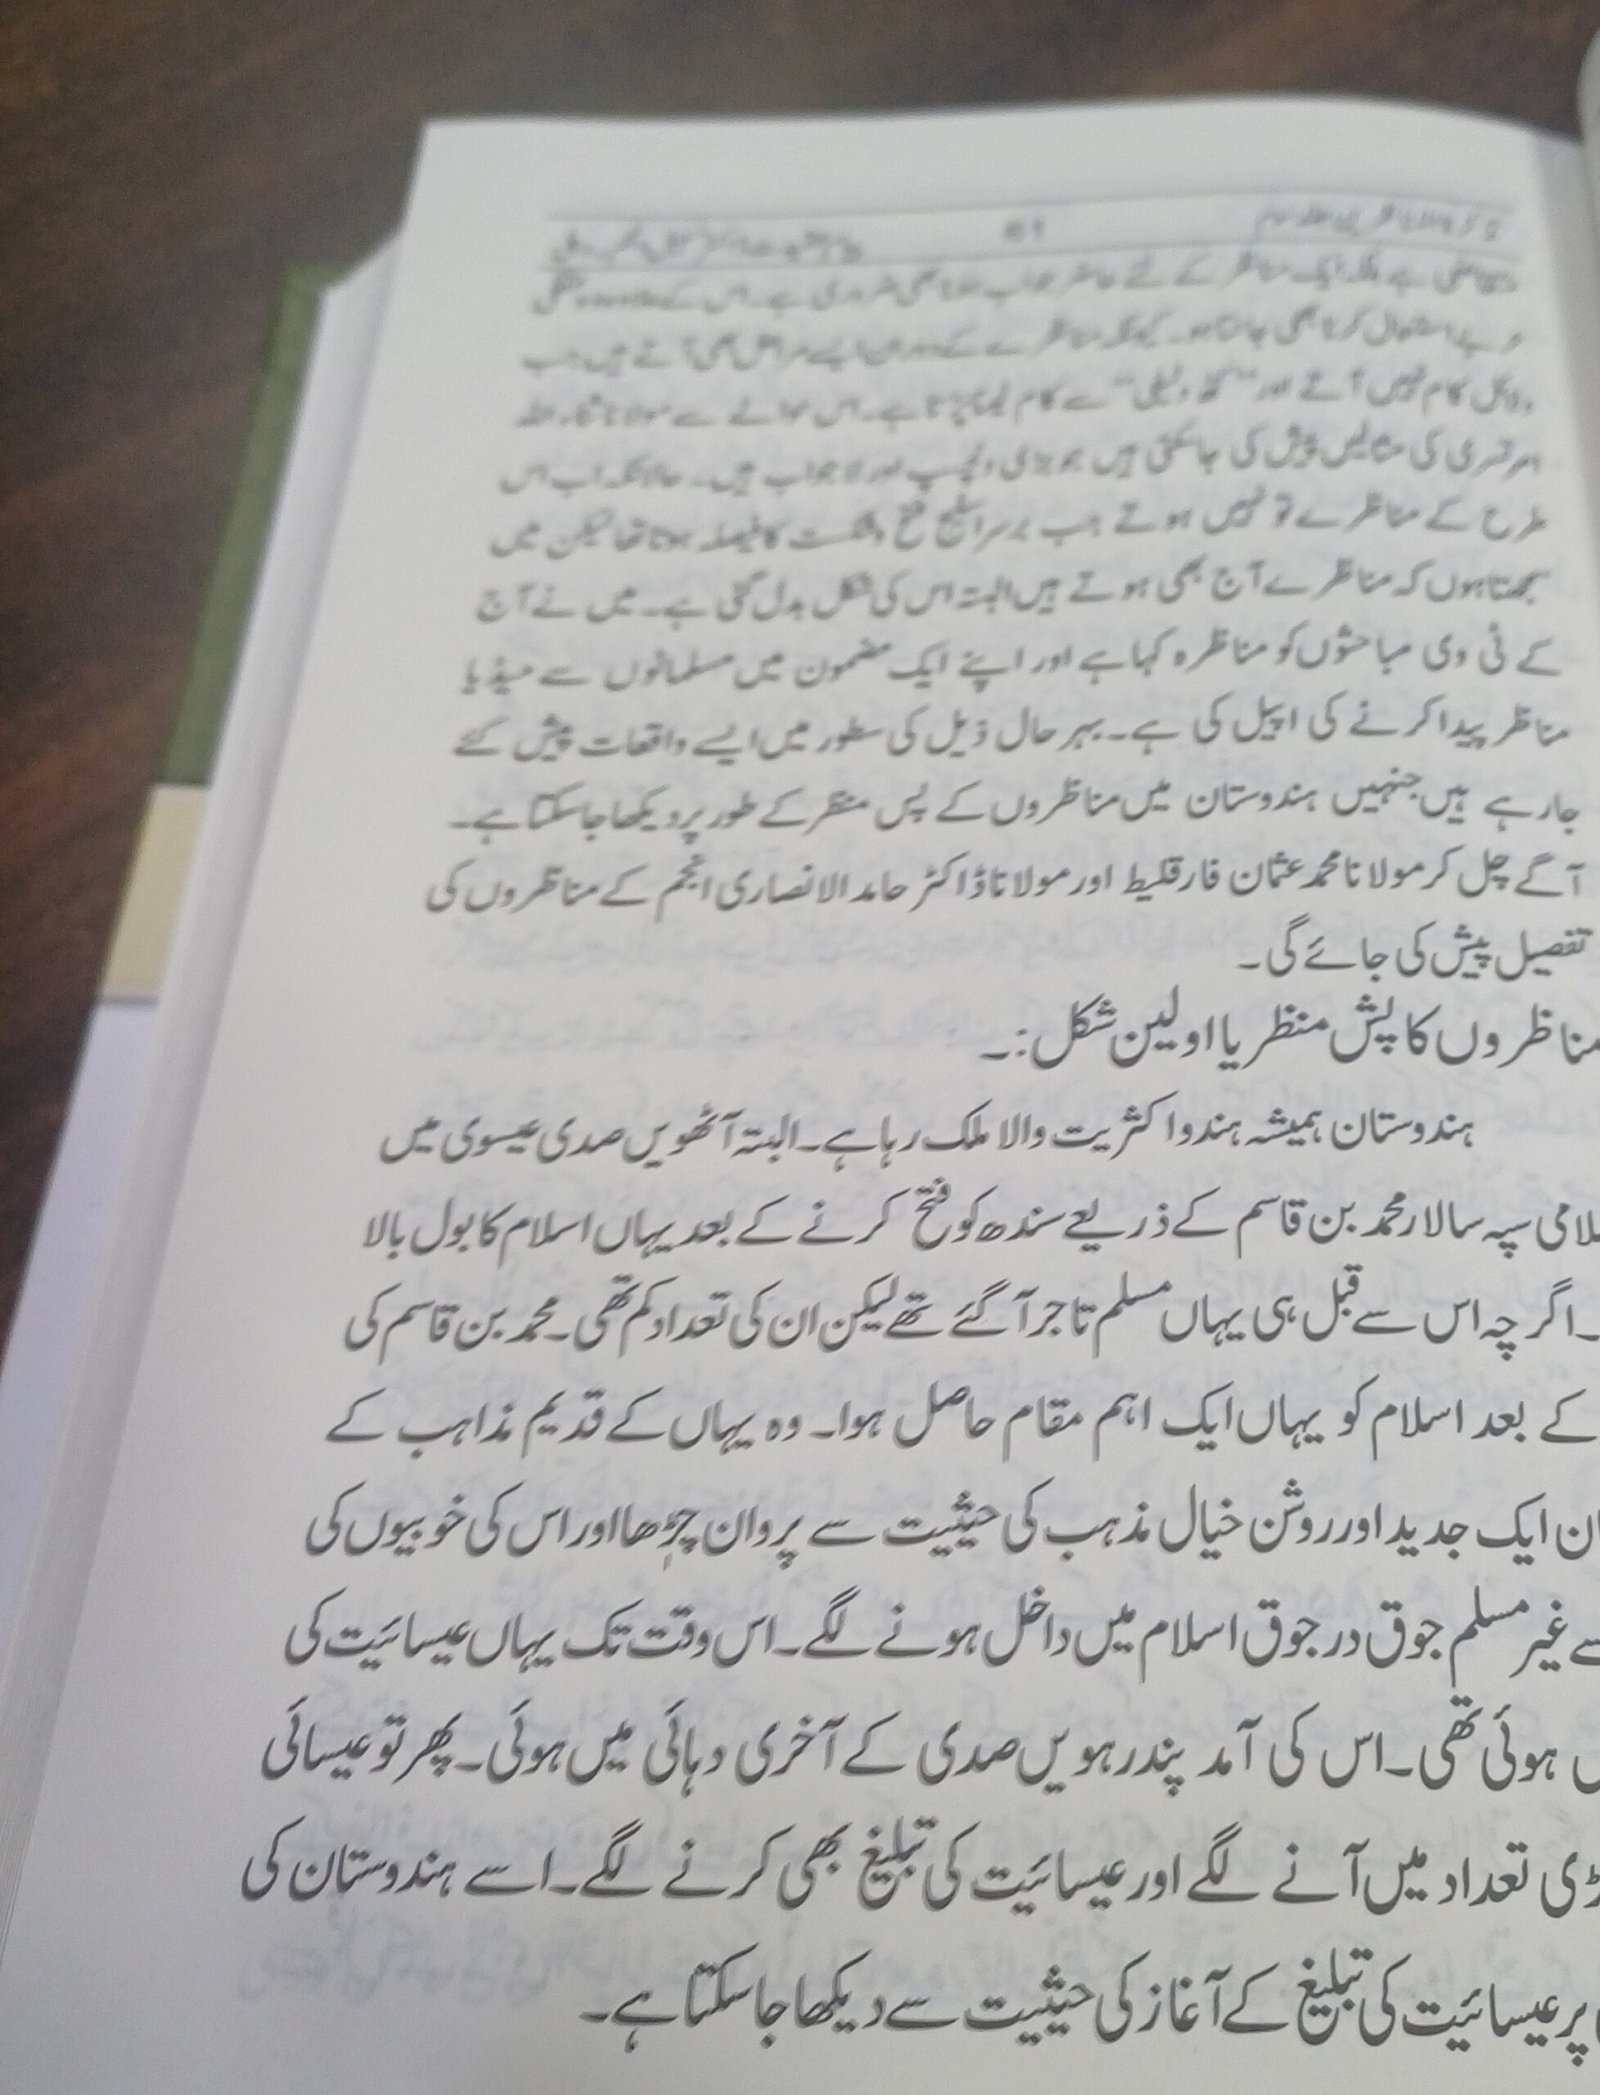 61
ہے بلکہ ایک مناظر کے لئے حاضر جواب ہونا بھی ضروری ہے۔ اس کے علاوہ
استعمال کرنا بھی جانتا ہو۔ کیونکہ مناظرے کے دوران ایسے مراحل بھی آتے ہیں جب
دلائل کام نہیں آتے اور سے کام لینا پڑتا ہے۔ اس حوالے سے مولانا ثناء اللہ
امرتسری کی مثالیں پیش کی جاسکتی ہیں جو بڑی دلچسپ اور لاجواب ہیں۔ حالانکہ اب اس
طرح کے مناظرے تو نہیں ہوتے جب برسر اسٹیج فتح و شکست کا فیصلہ ہوتا تھا لیکن میں
سمجھتا ہوں کہ مناظرے آج بھی ہوتے ہیں البتہ اس کی شکل بدل گئی ہے۔ میں نے آج
کے ٹی وی مباحثوں کو مناظرہ کہا ہے اور اپنے ایک مضمون میں مسلمانوں سے میڈیا
مناظر پیدا کرنے کی اپیل کی ہے۔ بہر حال ذیل کی سطور میں ایسے واقعات پیش کئے
جارہے ہیں جنہیں ہندوستان میں مناظروں کے پس منظر کے طور پر دیکھا جاسکتا ہے۔
آگے چل کر مولانا محمد عثمان فارقلیط اور مولانا ڈاکٹر حامد الانصاری انجم کے مناظروں کی
تفصیل پیش کی جائے گی۔
مناظروں کا پش منظر یا اولین شکل:۔
ہندوستان ہمیشہ ہندو اکثریت والا ملک رہا ہے۔ البتہ آٹھویں صدی عیسوی میں
سپہ سالار محمد بن قاسم کے ذریعے سندھ کو فتح کرنے کے بعد یہاں اسلام کا بول بالا
۔ اگرچہ اس سے قبل ہی یہاں مسلم تاجر آ گئے تھے لیکن ان کی تعداد کم تھی۔ محمد بن قاسم کی
کے بعد اسلام کو یہاں ایک اہم مقام حاصل ہوا۔ وہ یہاں کے قدیم مذاہب کے
ایک جدید اور روشن خیال مذہب کی حیثیت سے پروان چڑھا اور اس کی خوبیوں کی
غیر مسلم جوق در جوق اسلام میں داخل ہونے لگے۔ اس وقت تک یہاں عیسائیت کی
ہوئی تھی۔ اس کی آمد پندرہویں صدی کے آخری دہائی میں ہوئی۔ پھر تو عیسائی
تعداد میں آنے لگے اور عیسائیت کی تبلیغ بھی کرنے لگے۔ اسے ہندوستان کی
پر عیسائیت کی تبلیغ کے آغاز کی حیثیت سے دیکھا جاسکتا ہے۔